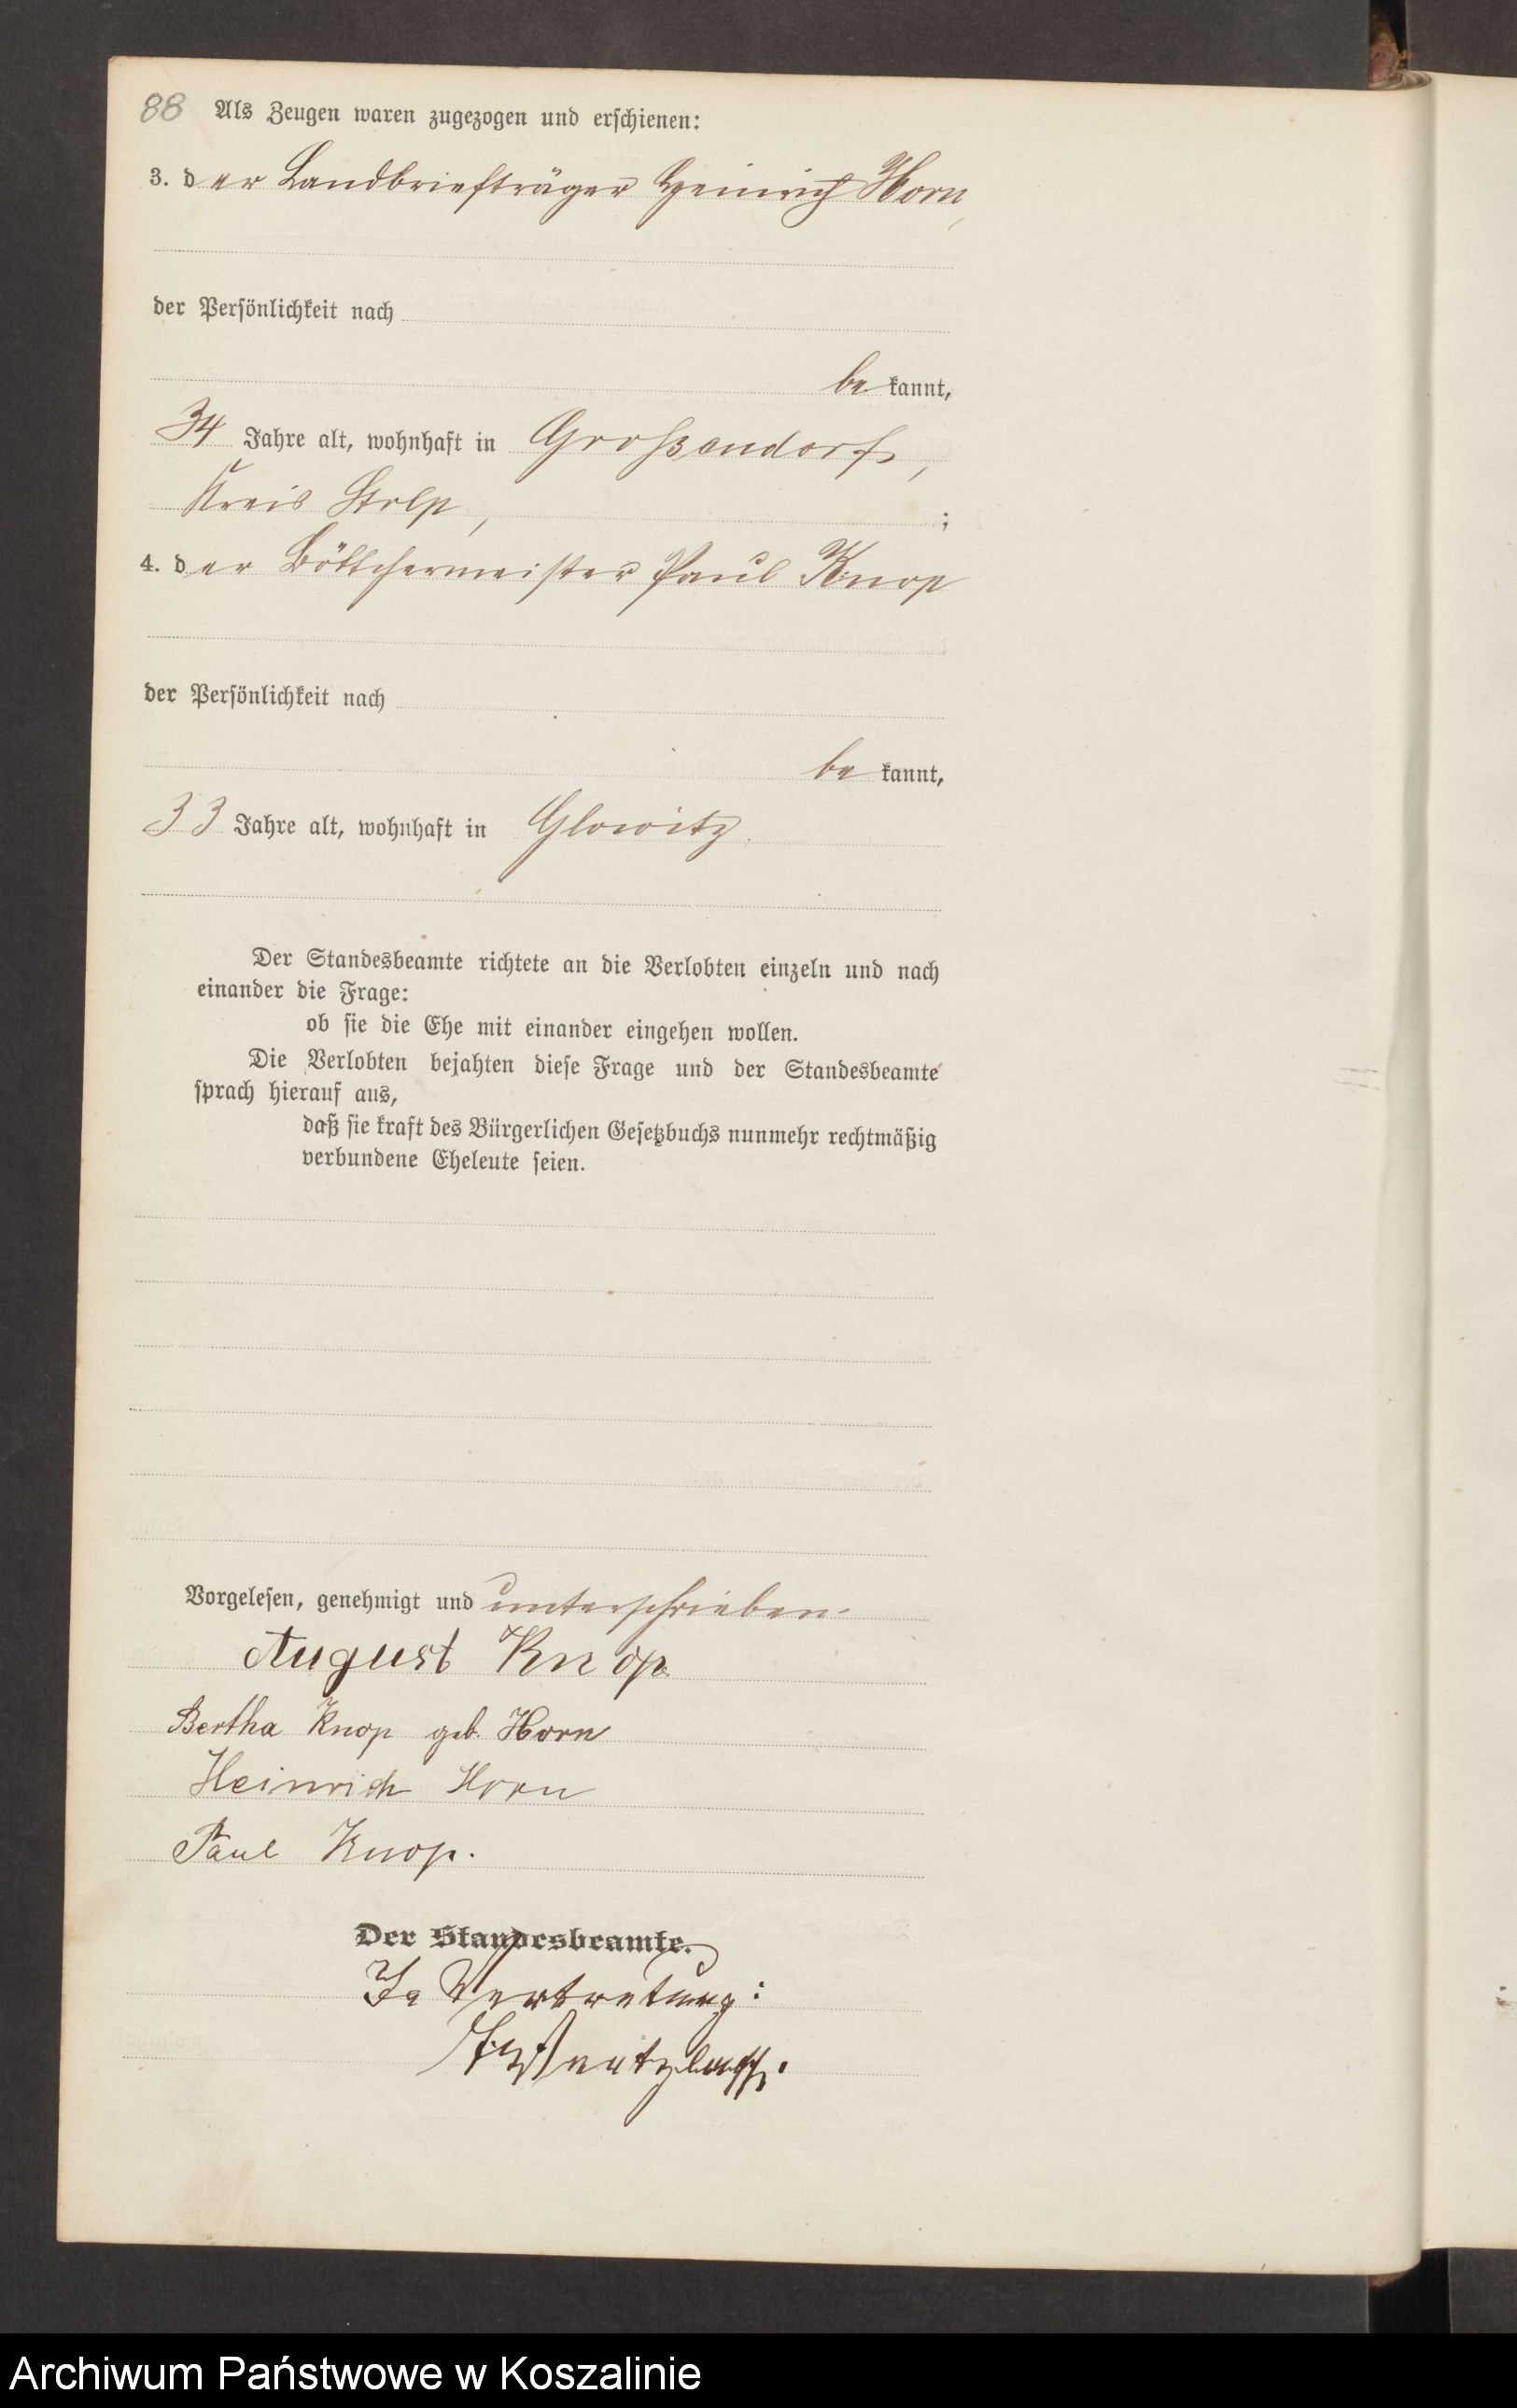 88 Als Zeugen waren zugezogen und erschienen:
3. der Landbriefträger Heinrich Horn,
der Persönlichkeit nach
bekannt,
34 Jahre alt, wohnhaft in Großendorf,
Kreis Stolp, ;
4. der Böttchermeister Paul Knop
der Persönlichkeit nach
bekannt,
33 Jahre alt, wohnhaft in Glowitz.
Der Standesbeamte richtete an die Verlobten einzeln und nach
einander die Frage:
ob sie die Ehe mit einander eingehen wollen.
Die Verlobten bejahten diese Frage und der Standesbeamte
sprach hierauf aus,
daß sie kraft des Bürgerlichen Gesetzbuchs nunmehr rechtmäßig
verbundene Eheleute seien.
Vorgelesen, genehmigt und unterschrieben.
August Knop
Bertha Knop geb. Horn
Heinrich Horn
Paul Knop.
Der Standesbeamte.
In Vertretung:
Archiwum Państwowe w Koszalinie